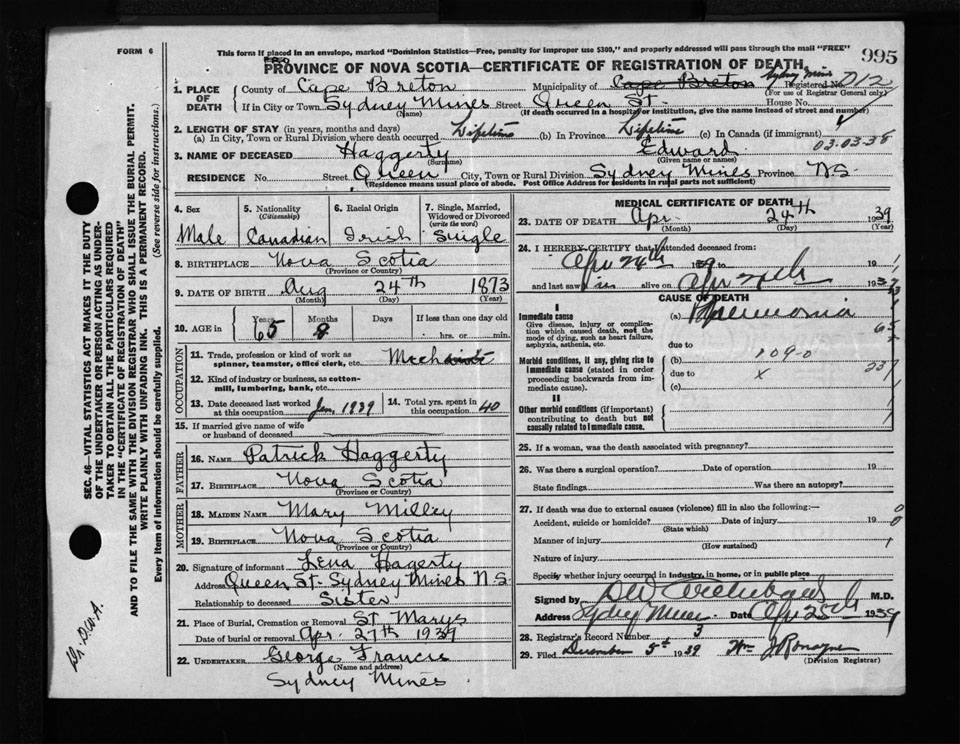 FORM 6
This form if placed in an envelope, marked "Dominion Statistics—Free, penalty for improper use $300," and properly addressed will pass through the mail "FREE"
995
PROVINCE OF NOVA SCOTIA—CERTIFICATE OF REGISTRATION OF DEATH
1. PLACE OF DEATH
County of Cape Breton Municipality of Cape Breton Sydney Mines Registered No. D12
(For use of Registrar General only)
If in City or Town Sydney Mines Street Queen St. House No.
(Name) (If death occurred in a hospital or institution, give the name instead of street and number)
2. LENGTH OF STAY (in years, months and days)
(a) In City, Town or Rural Division where death occurred Lifetime (b) In Province Lifetime (c) In Canada (if immigrant)
03-03-38
3. NAME OF DECEASED Haggerty Edward
(Surname) (Given name or names)
RESIDENCE No. Street Queen City, Town or Rural Division Sydney Mines Province N.S.
(Residence means usual place of abode. Post Office Address for residents in rural parts not sufficient)
4. Sex
Male
5. Nationality (Citizenship)
Canadian
6. Racial Origin
Irish
7. Single, Married, Widowed or Divorced (write the word)
Single
8. BIRTHPLACE Nova Scotia
(Province or Country)
9. DATE OF BIRTH Aug 24th 1873
(Month) (Day) (Year)
10. AGE in Years Months Days If less than one day
65 8 hrs. or min.
OCCUPATION
11. Trade, profession or kind of work as spinner, teamster, office clerk, etc.
12. Kind of industry or business, as cotton-mill, lumbering, bank, etc.
13. Date deceased last worked at this occupation Jan, 1939
14. Total yrs. spent in this occupation 40
15. If married give name of wife or husband of deceased
FATHER
16. NAME Patrick Haggerty
17. BIRTHPLACE Nova Scotia
(Province or Country)
MOTHER
18. MAIDEN NAME Mary Milley
19. BIRTHPLACE Nova Scotia
(Province or Country)
20. Signature of informant Lena Hagerty
Address Queen St. Sydney Mines N.S.
Relationship to deceased Sister
21. Place of Burial, Cremation or Removal St Marys
Date of burial or removal Apr. 27th 1939
22. UNDERTAKER George Francis
(Name and address)
Sydney Mines
MEDICAL CERTIFICATE OF DEATH
23. DATE OF DEATH Apr. 24th 1939
(Month) (Day) (Year)
24. I HEREBY CERTIFY that I attended deceased from:
Apr 24th 1939
and last saw him alive on Apr 24th 1939
CAUSE OF DEATH
I
Immediate cause
Give disease, injury or complication which caused death, not the mode of dying, such as heart failure, asphyxia, asthenia, etc.
(a) Pneumonia
due to
Morbid conditions, if any, giving rise to immediate cause (stated in order proceeding backwards from immediate cause).
(b) 109-0
due to x
(c)
II
Other morbid conditions (if important) contributing to death but not causally related to immediate cause.
25. If a woman, was the death associated with pregnancy?
26. Was there a surgical operation? Date of operation 19
State findings Was there an autopsy?
27. If death was due to external causes (violence) fill in also the following:—
Accident, suicide or homicide? Date of injury 19
(State which)
Manner of injury
(How sustained)
Nature of injury
Specify whether injury occurred in industry, in home, or in public place
Signed by M.D.
Address Sydney Mines Date Apr 25th 1939
28. Registrar's Record Number 3
29. Filed December 5th 1939 Wm J Ronayne
(Division Registrar)
SEC. 46—VITAL STATISTICS ACT MAKES IT THE DUTY
OF THE UNDERTAKER OR PERSON ACTING AS UNDERTAKER TO OBTAIN ALL THE PARTICULARS REQUIRED
IN THE "CERTIFICATE OF REGISTRATION OF DEATH"
AND TO FILE THE SAME WITH THE DIVISION REGISTRAR WHO SHALL ISSUE THE BURIAL PERMIT.
WRITE PLAINLY WITH UNFADING INK. THIS IS A PERMANENT RECORD.
Every item of information should be carefully supplied. (See reverse side for instructions.)
Dr. D.W.A.